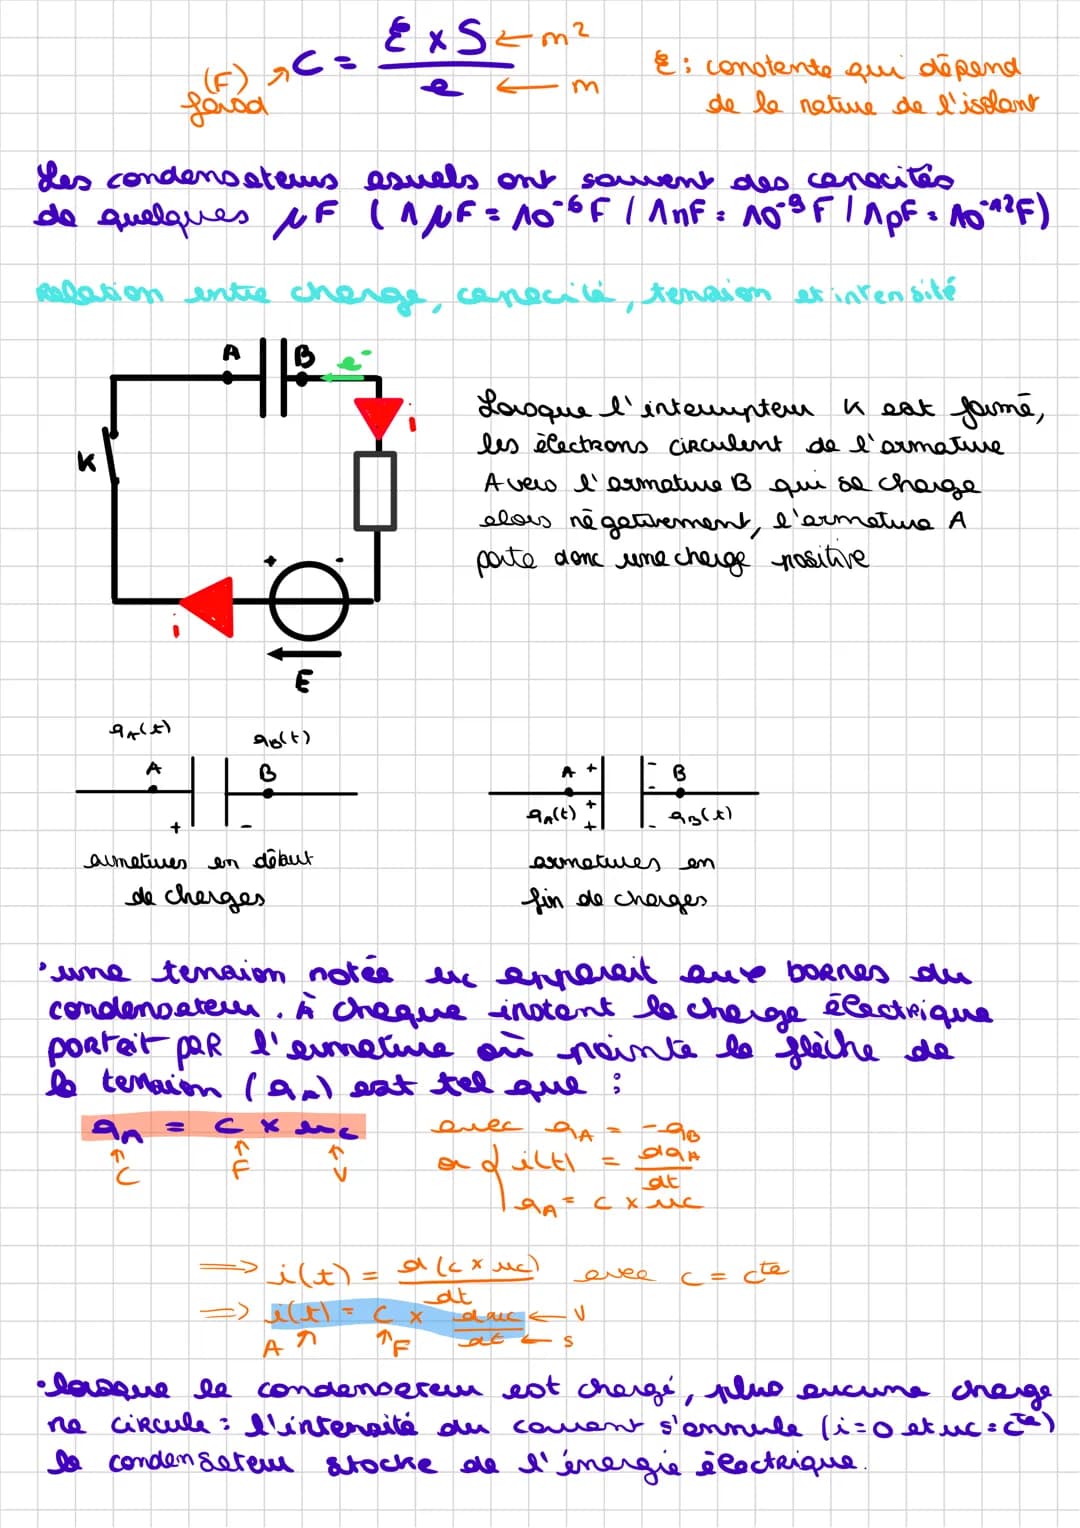 C = ε × S / e
← m²
← m
(F) farad
ε : constante qui dépend
de la nature de l'isolant
Les condensateurs usuels ont souvent des capacités
de quelques µF (1µF = 10⁻⁶F / 1nF = 10⁻⁹F / 1pF = 10⁻¹²F)
Relation entre charge, capacité, tension et intensité
A B e⁻
i
K
+ -
i
E
Lorsque l'interrupteur K est fermé,
les électrons circulent de l'armature
A vers l'armature B qui se charge
alors négativement, l'armature A
porte donc une charge positive
qA(t) qB(t)
A B
+ -
armatures en début
de charges
A + - B
qA(t) + + - - qB(t)
armatures en
fin de charges
• une tension notée uc apparait aux bornes du
condensateur. À chaque instant la charge électrique
portait par l'armature où pointe la flèche de
la tension (qA) est tel que :
qA = C × uc
↑ C ↑ F ↑ V
avec qA = -qB
or { i(t) = dqA / dt
qA = C × uc
⇒ i(t) = d(C × uc) / dt avec C = cte
⇒ i(t) = C × duc / dt ← V ← s
A ↑ ↑ F
• lorsque le condensateur est chargé, plus aucune charge
ne circule : l'intensité du courant s'annule (i=0 et uc = cte)
le condensateur stocke de l'énergie électrique.